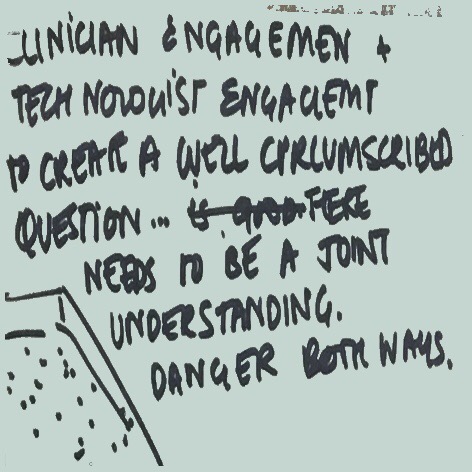 CLINICIAN ENGAGEMEN +
TECHNOLOGIST ENGAGEMT
TO CREATE A WELL CIRCUMSCRIBED
QUESTION... IS GOOD THERE
NEEDS TO BE A JOINT
UNDERSTANDING.
DANGER BOTH WAYS.